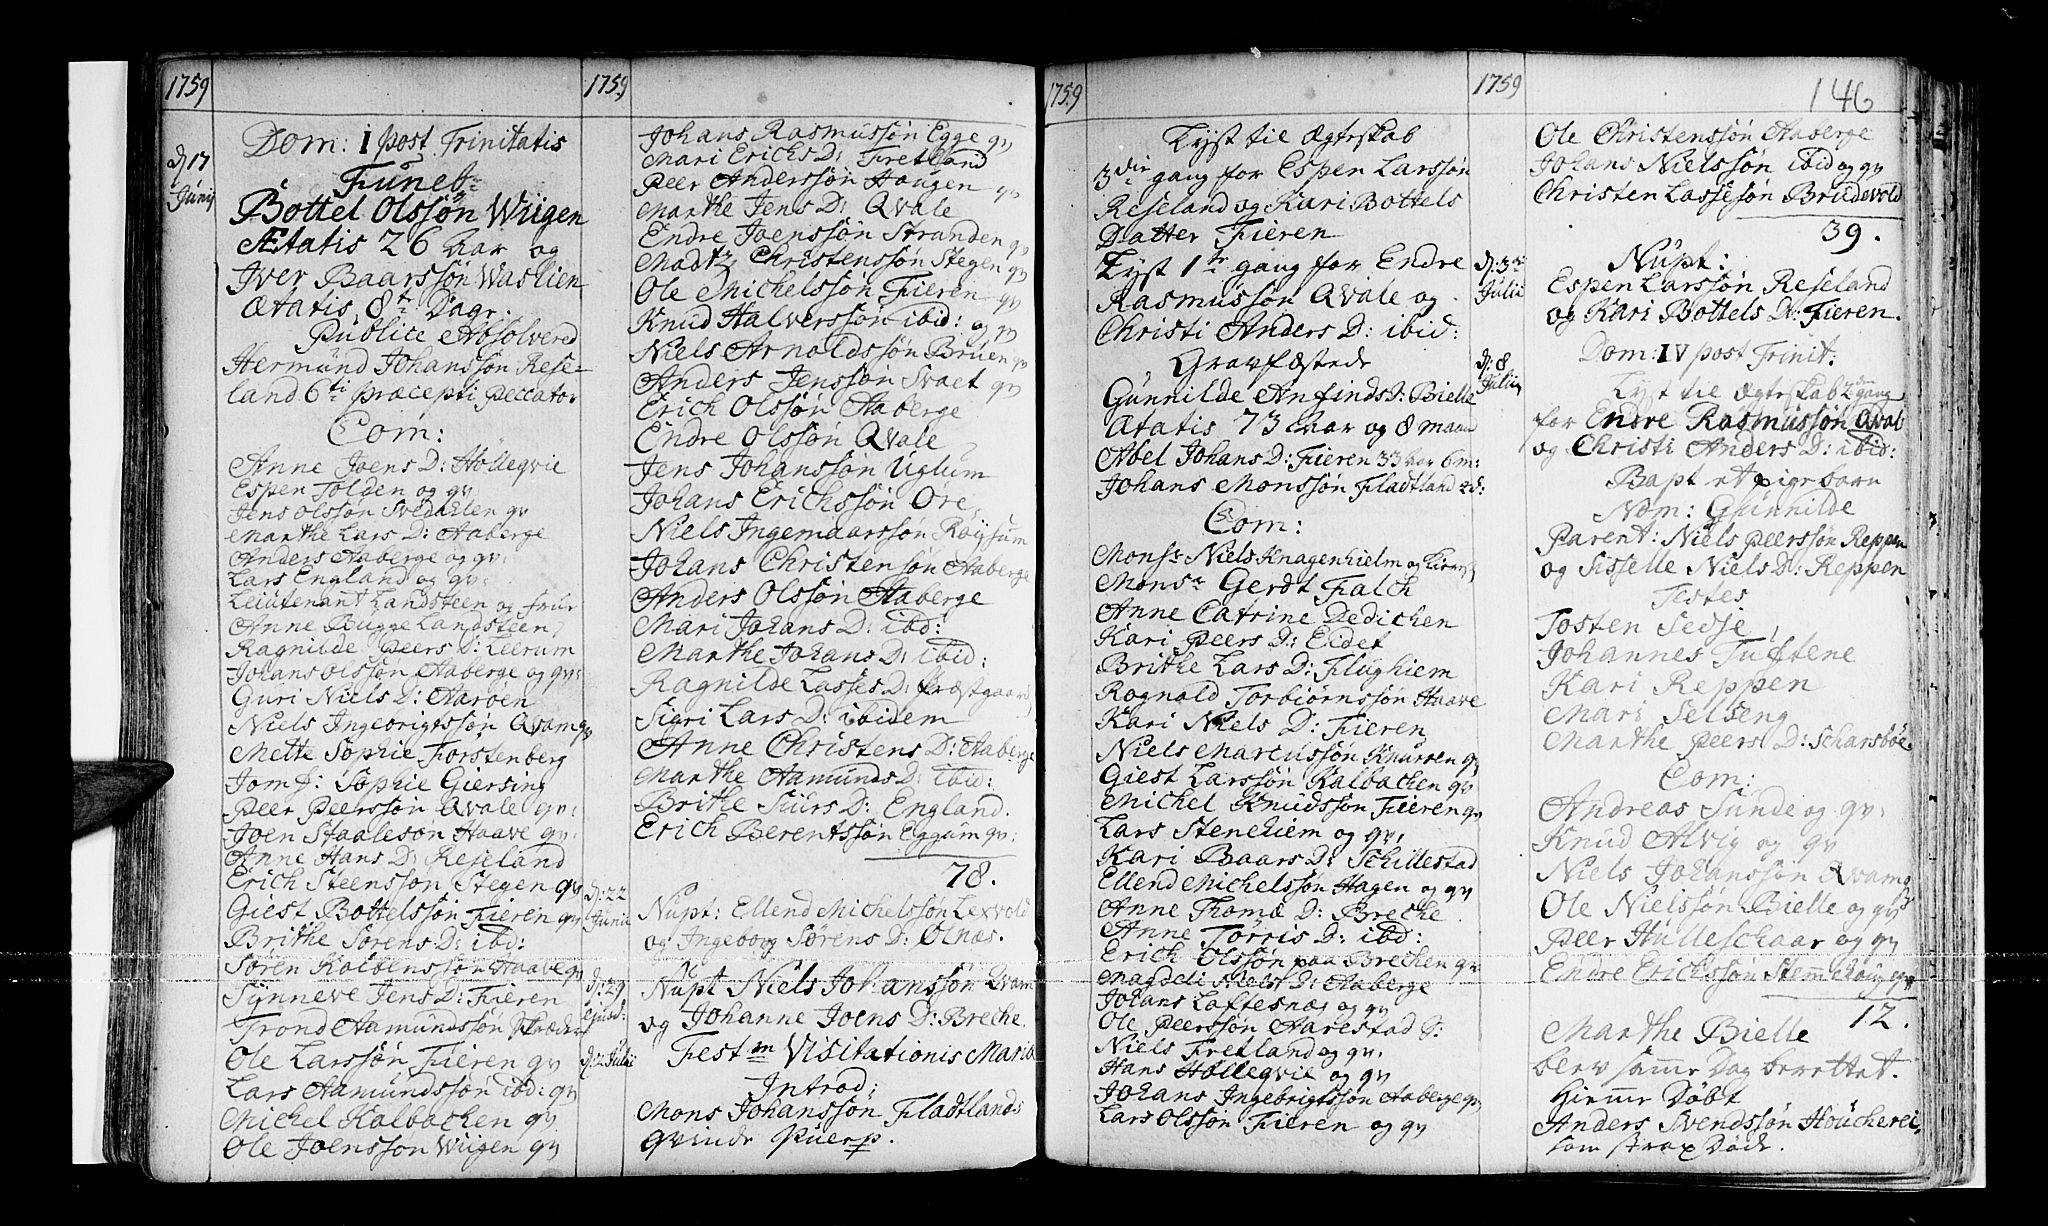 1759
d: 17
Junij
Dom: I post Trinitatis
Funer:
Bottel Olssøn Wiigen
Ætatis 26 Aar og
Iver Baarssøn Waslien
Ætatis 8t Dagr.
Publice Absolvered
Hermund Johanssøn Rese-
land 6ti Præcepti Peccator
Com:
Anne Joens D: Hollegvie
Espen Tolden og qv
Jens Olssøn Svedahlen qv
Marthe Lars D: Aaberge
Anders Aaberge og qv:
Lars England og qv:
Leiutenant Landsteen og frur
Anne Bugge Landsteen
Ragnilde Peers D: Leerum
Johans Olssøn Aaberge og qv:
Guri Niels D: Aarøen
Niels Ingebrigtssøn Qvam qv
Mette Sophie Forstenberg
Jomf: Sophie Giersing
Peer Peerssøn Qvale qv:
Joen Staalesøn Haave qv:
Anne Hans D: Reseland
Erich Steenssøn Stegen qv
Giest Bottelssøn Fieren qv
Brithe Sørens D: ibd:
Søren Kolbenssøn Haave qv
Synneve Jens D: Fieren
Trond Aamundssøn Skræder
Ole Larssøn Fieren qv
Lars Aamundssøn ibd: qv
Michel Kalbachen qv
Ole Joenssøn Wiigen qv
1759
Johans Rasmussøn Egge qv
Mari Erichs D: Fretland
Peer Anderssøn Hougen qv
Marthe Jens D: Qvale
Endre Joenssøn Stranden qv
Madtz Christenssøn Stegen qv
Ole Michelssøn Fieren qv
Knud Halverssøn ibid: og qv
Niels Arnoldssøn Bruen qv
Anders Jenssøn Svaet qv
Erich Olssøn Aaberge
Endre Olssøn Qvale
Jens Johanssøn Uglum
Johans Erichssøn Øre
Niels Ingemaarssøn Røysum
Johans Christensøn Aaberge
Anders Olssøn Aaberge
Mari Johans D: ibd:
Marthe Johans D: ibid:
Ragnilde Lasses D: Præstgaard
Sigri Lars D: ibidem
Anne Christens D: Aaberge
Marthe Aamunds D: ibid:
Brithe Siurs D: England.
Erich Berentssøn Eggum qv:
78.
d: 22
Junii
Nupt: Ellend Michelssøn Lexvold
og Ingeborg Sørens D: Ølnæs.
d: 29
ejusd:
Nupt Niels Johanssøn Qvam
og Johanne Joens D: Breche
d: 2 Julii
Festm Visitationis Mariæ
Introd:
Mons Johanssøn Fladtlands
qvinde Puerp.
1759
Lyst til Ægteskab
3die gang for Espen Larssøn
Reseland og Kari Bottels
Datter Fieren
Lyst 1te gang for Endre
Rasmussøn Qvale og
Christi Anders D: ibid:
Gravfæstede
Gunnilde Anfinds D: Bielle
Ætatis 73 Aar og 8 maan
Abel Johans D: Fieren 33 Aar 6 m:
Johans Monssøn Fladtland 2 d:
Com:
Monsr Niels Knagenhielm og
Monsr Gerdt Falch
Anne Catrine Dedichen
Kari Peers D: Eidet
Brithe Lars D: Flughiem
Rognald Torbiørnssøn Haave
Kari Niels D: Fieren
Niels Marcussøn Knurren qv
Giest Larssøn Kalbachen qv
Michel Knudssøn Fieren qv
Lars Stenehiem og qv:
Kari Baars D: Schillestad
Ellend Michelssøn Hagen og qv
Anne Thomæ D: Breche
Anne Torris D: ibd:
Erich Olssøn paa Brechen qv
Magdeli Niels D: Aaberge
Johans Loftesnæs og qv
Ole Peerssøn Aarestad
Niels Fretland og qv:
Hans Hollegvie og qv
Johans Ingebrigtssøn Aaberge qv
Lars Olssøn Fieren og qv
1759
146
Ole Christenssøn Aaberge
Johans Nielssøn ibid og qv
Christen Lassesøn Brudevold
39.
d: 3die
Julii
Nupt:
Espen Larssøn Reseland
og Kari Bottels D: Fieren.
d: 8
Julii
Dom: IV post Trinit:
Lyst til Ægteskab 2den gang
for Endre Rasmussøn Qvale
og Christi Anders D: ibid:
Bapt et pigebarn
Nom: Gunnilde
Parent: Niels Peerssøn Reppen
og Sisselle Niels D: Reppen
Testes
Tosten Sedje
Johannes Tuftene
Kari Reppen
Mari Selseng
Marthe Peers D: Scharsbøe.
Com:
Andreas Sunde og qv:
Knud Alvig og qv
Niels Johanssøn Qvam og qv
Ole Nielssøn Bielle og qv
Peer Hulleschaar og qv
Endre Erichssøn Stemehoug qv
12.
Marthe Bielle
blev samme Dag berettet.
Hiemme Døbt
Anders Svendssøn Houcherei,
som strax Døde.